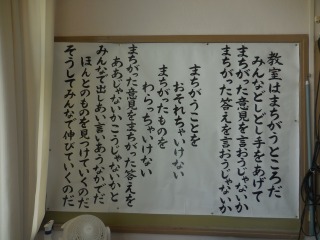 教室はまちがうところだ
みんなどしどし手をあげて
まちがった意見を言おうじゃないか
まちがった答えを言おうじゃないか
まちがうことを
おそれちゃいけない
まちがったものを
わらっちゃいけない
まちがった意見をまちがった答えを
ああじゃないかこうじゃないかと
みんなで出しあい言いあうなかでだ
ほんとのものを見つけていくのだ
そうしてみんなで伸びていくのだ